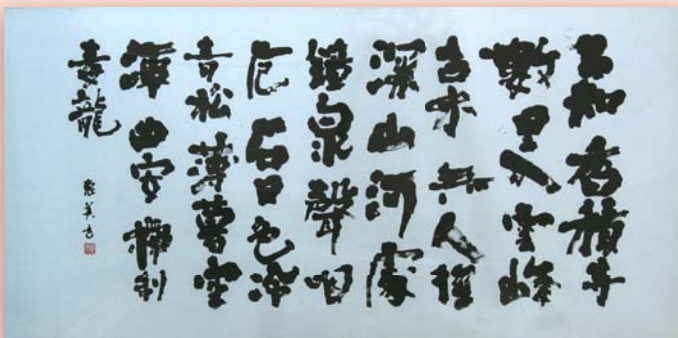 不知香積寺
數里入雲峰
古木無人徑
深山何處
鐘泉聲咽
危石日色冷
青松薄暮空
潭曲安禪制
毒龍